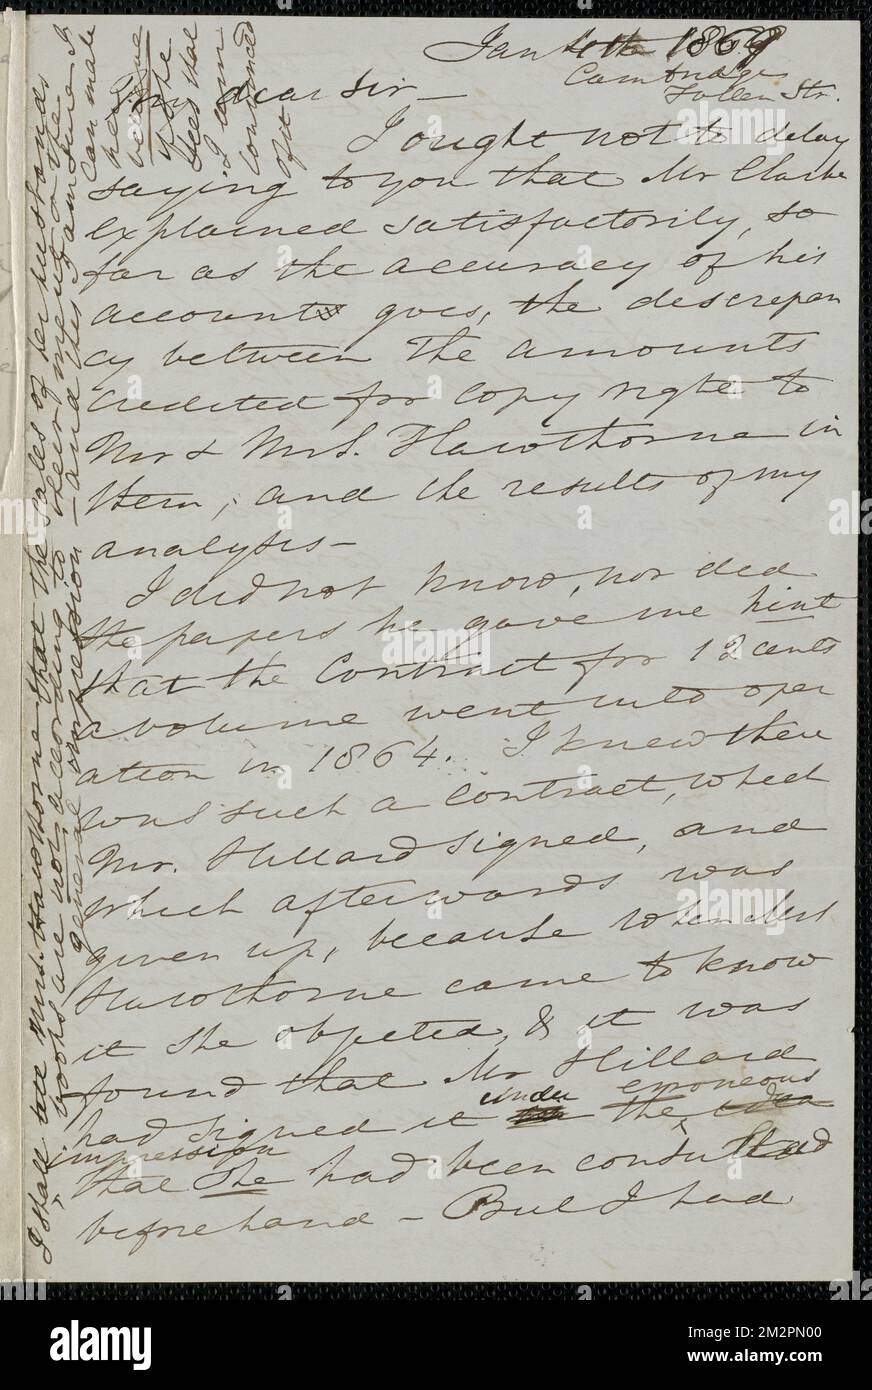 Jan 4th 1869
Cambridge
Follen Str.
My dear Sir —
I ought not to delay
saying to you that Mr Clarke
explained satisfactorily, so
far as the accuracy of his
accounts goes, the discrepan
cy between the amounts
credited for copy right to
Mr & Mrs. Hawthorne in
them, and the results of my
analysis —
I did not know, nor did
the papers he gave me hint
that the Contract for 12 cents
a volume went into oper
ation in 1864. I knew there
was such a contract, which
Mr. Hillard signed, and
which afterwards was
given up, because when Mrs
Hawthorne came to know
it she objected, & it was
found that Mr Hillard
had signed it under the erroneous idea
impression
that She had been consulted
beforehand — But I had
I shall tell Mrs. Hawthorne that the sales of her husbands
books are not according to their merit or the
general impression — and this I am sure I
can make
her
believe
if she
sees that
I am
convinced
of it.
alamy
Image ID: 2M2PN00
www.alamy.com